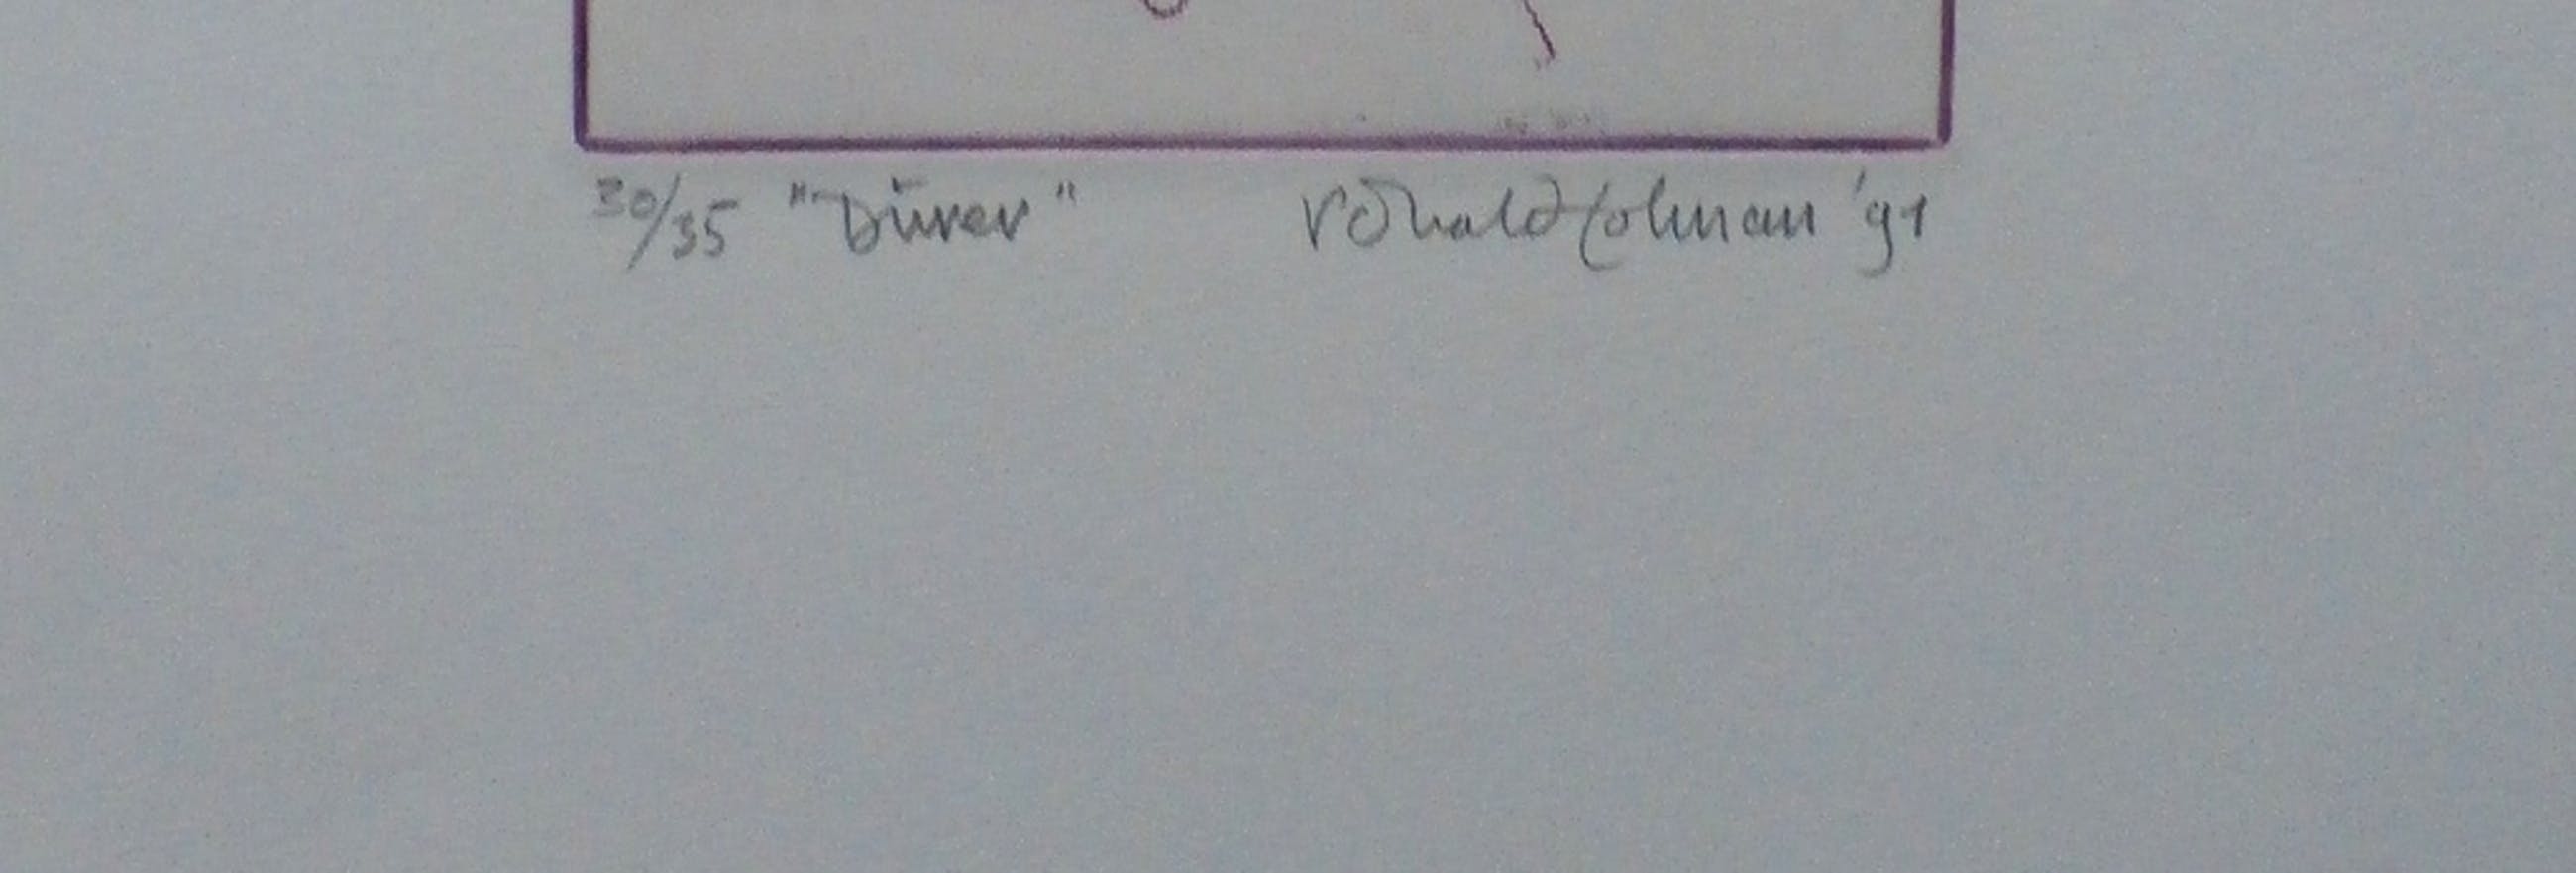 30/35 "Dürer" Ronald Tolman '91